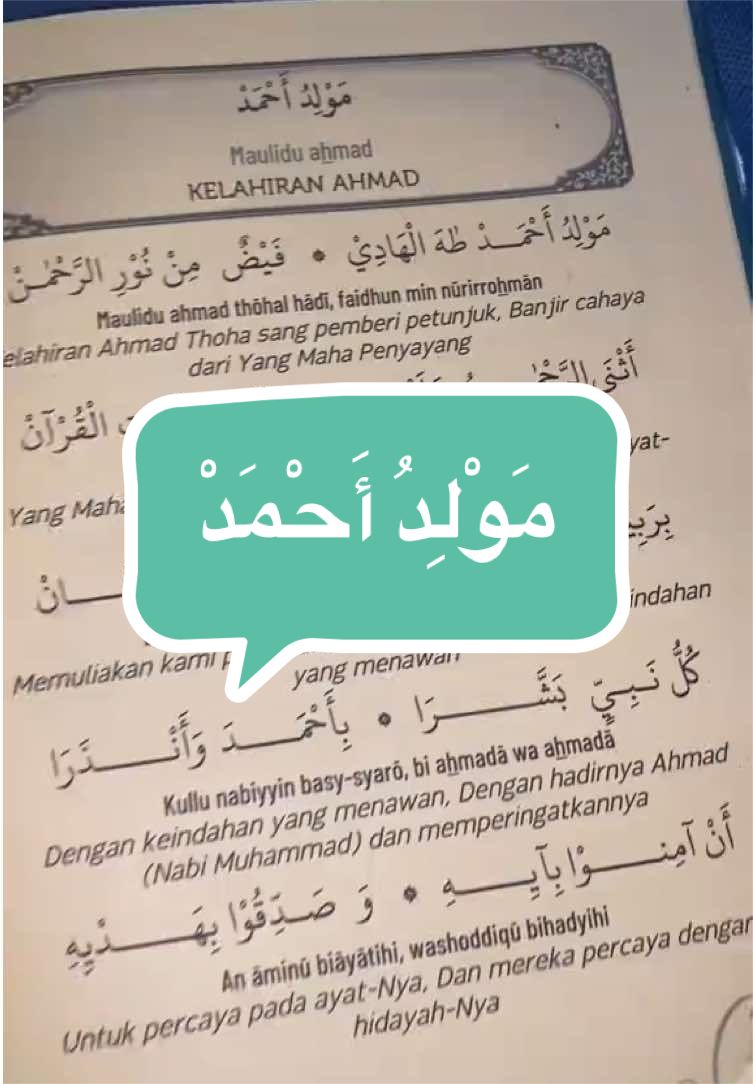 مَوْلِدُ أَحْمَدْ
Maulidu aḥmad
KELAHIRAN AHMAD
مَوْلِدُ أَحْمَــدْ طٰهَ الْهَادِيْ • فَيْضٌ مِنْ نُوْرِ الرَّحْمٰـنْ
Maulidu ahmad thōhal hādī, faidhun min nūrirroḥmān
elahiran Ahmad Thoha sang pemberi petunjuk, Banjir cahaya
dari Yang Maha Penyayang
أَثْنَى الْقُرْآنْ
yat-
Yang Maha
مَوْلِدُ أَحْمَدْ
indahan
Memuliakan kami
yang menawan
كُلُّ نَـبِـيٍّ بَشَّــــرَا • بِأَحْمَــدَ وَأَنْــــذَرَا
Kullu nabiyyin basy-syarō, bi aḥmadā wa aḥmadā
Dengan keindahan yang menawan, Dengan hadirnya Ahmad
(Nabi Muhammad) dan memperingatkannya
أَنْ آمِنُــــوْا بِآيِــــهِ • وَ صَـدِّقُوْا بِهَــــدْيِهِ
An āminū biāyātihi, washoddiqū bihadyihi
Untuk percaya pada ayat-Nya, Dan mereka percaya dengar
hidayah-Nya